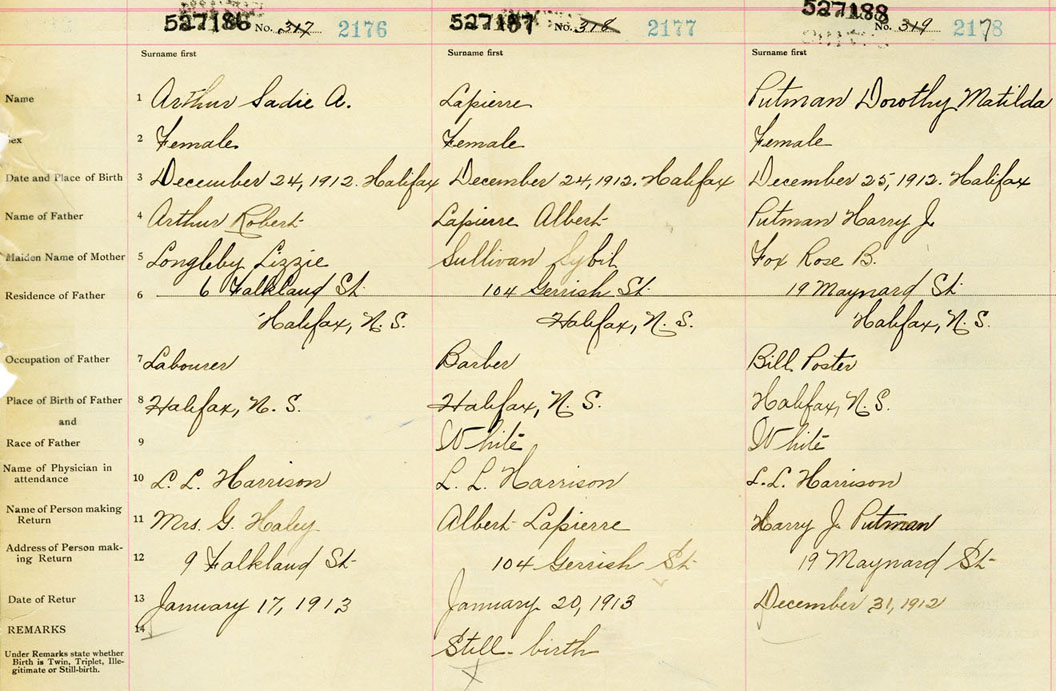 527186 No. 317 2176
527187 No. 318 2177
527188 No. 319 2178 7
Surname first Surname first Surname first
Name 1 Arthur Sadie A. Lapierre Putman Dorothy Matilda
ex 2 Female. Female Female
Date and Place of Birth 3 December 24, 1912. Halifax December 24, 1912. Halifax December 25, 1912. Halifax
Name of Father 4 Arthur Robert Lapierre Albert Putman Harry J
Maiden Name of Mother 5 Longleby Lizzie Sullivan Sybil Fox Rose B.
Residence of Father 6 6 Falkland St. 104 Gerrish St. 19 Maynard St.
Halifax, N. S. Halifax, N. S. Halifax, N. S.
Occupation of Father 7 Labourer Barber Bill Poster
Place of Birth of Father 8 Halifax, N. S. Halifax, N. S. Halifax, N. S.
and
Race of Father 9 White White
Name of Physician in
attendance 10 L. L. Harrison L. L. Harrison L. L. Harrison
Name of Person making
Return 11 Mrs. G. Haley Albert Lapierre Harry J. Putman
Address of Person mak-
ing Return 12 9 Falkland St. 104 Gerrish St. 19 Maynard St.
Date of Retur 13 January 17, 1913 January 20, 1913 December 31, 1912
REMARKS 14
Still-birth
Under Remarks state whether
Birth is Twin, Triplet, Ille-
gitimate or Still-birth.